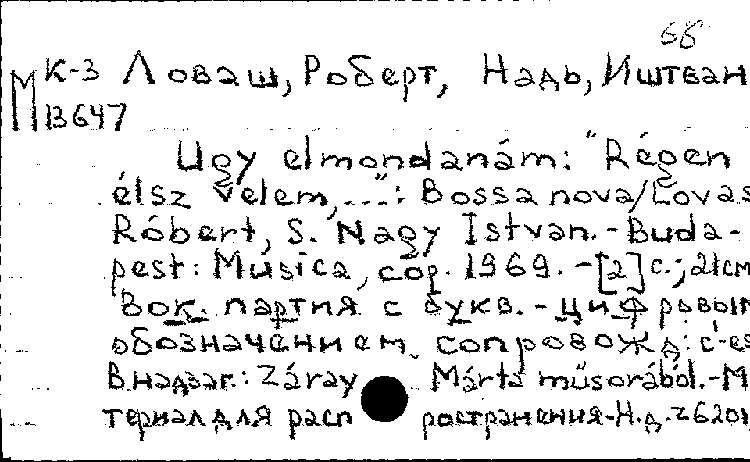 68
М К-3 Ловаш, Роберт, Надь, Иштван
13647
Ugy elmondanám: "Régen
élsz velem,...": Bossa nova/Lovas
Róbert, S. Nagy Istvan.-Buda-
pest: Música, cop. 1969. -[2] с.; 21см
Вок. партия с букв.-цифровым
обозначением сопровожд.: c'-es
В надзаг.: Záray Márta műsorából.-М
териал для расп ространения-Н.д.z6201